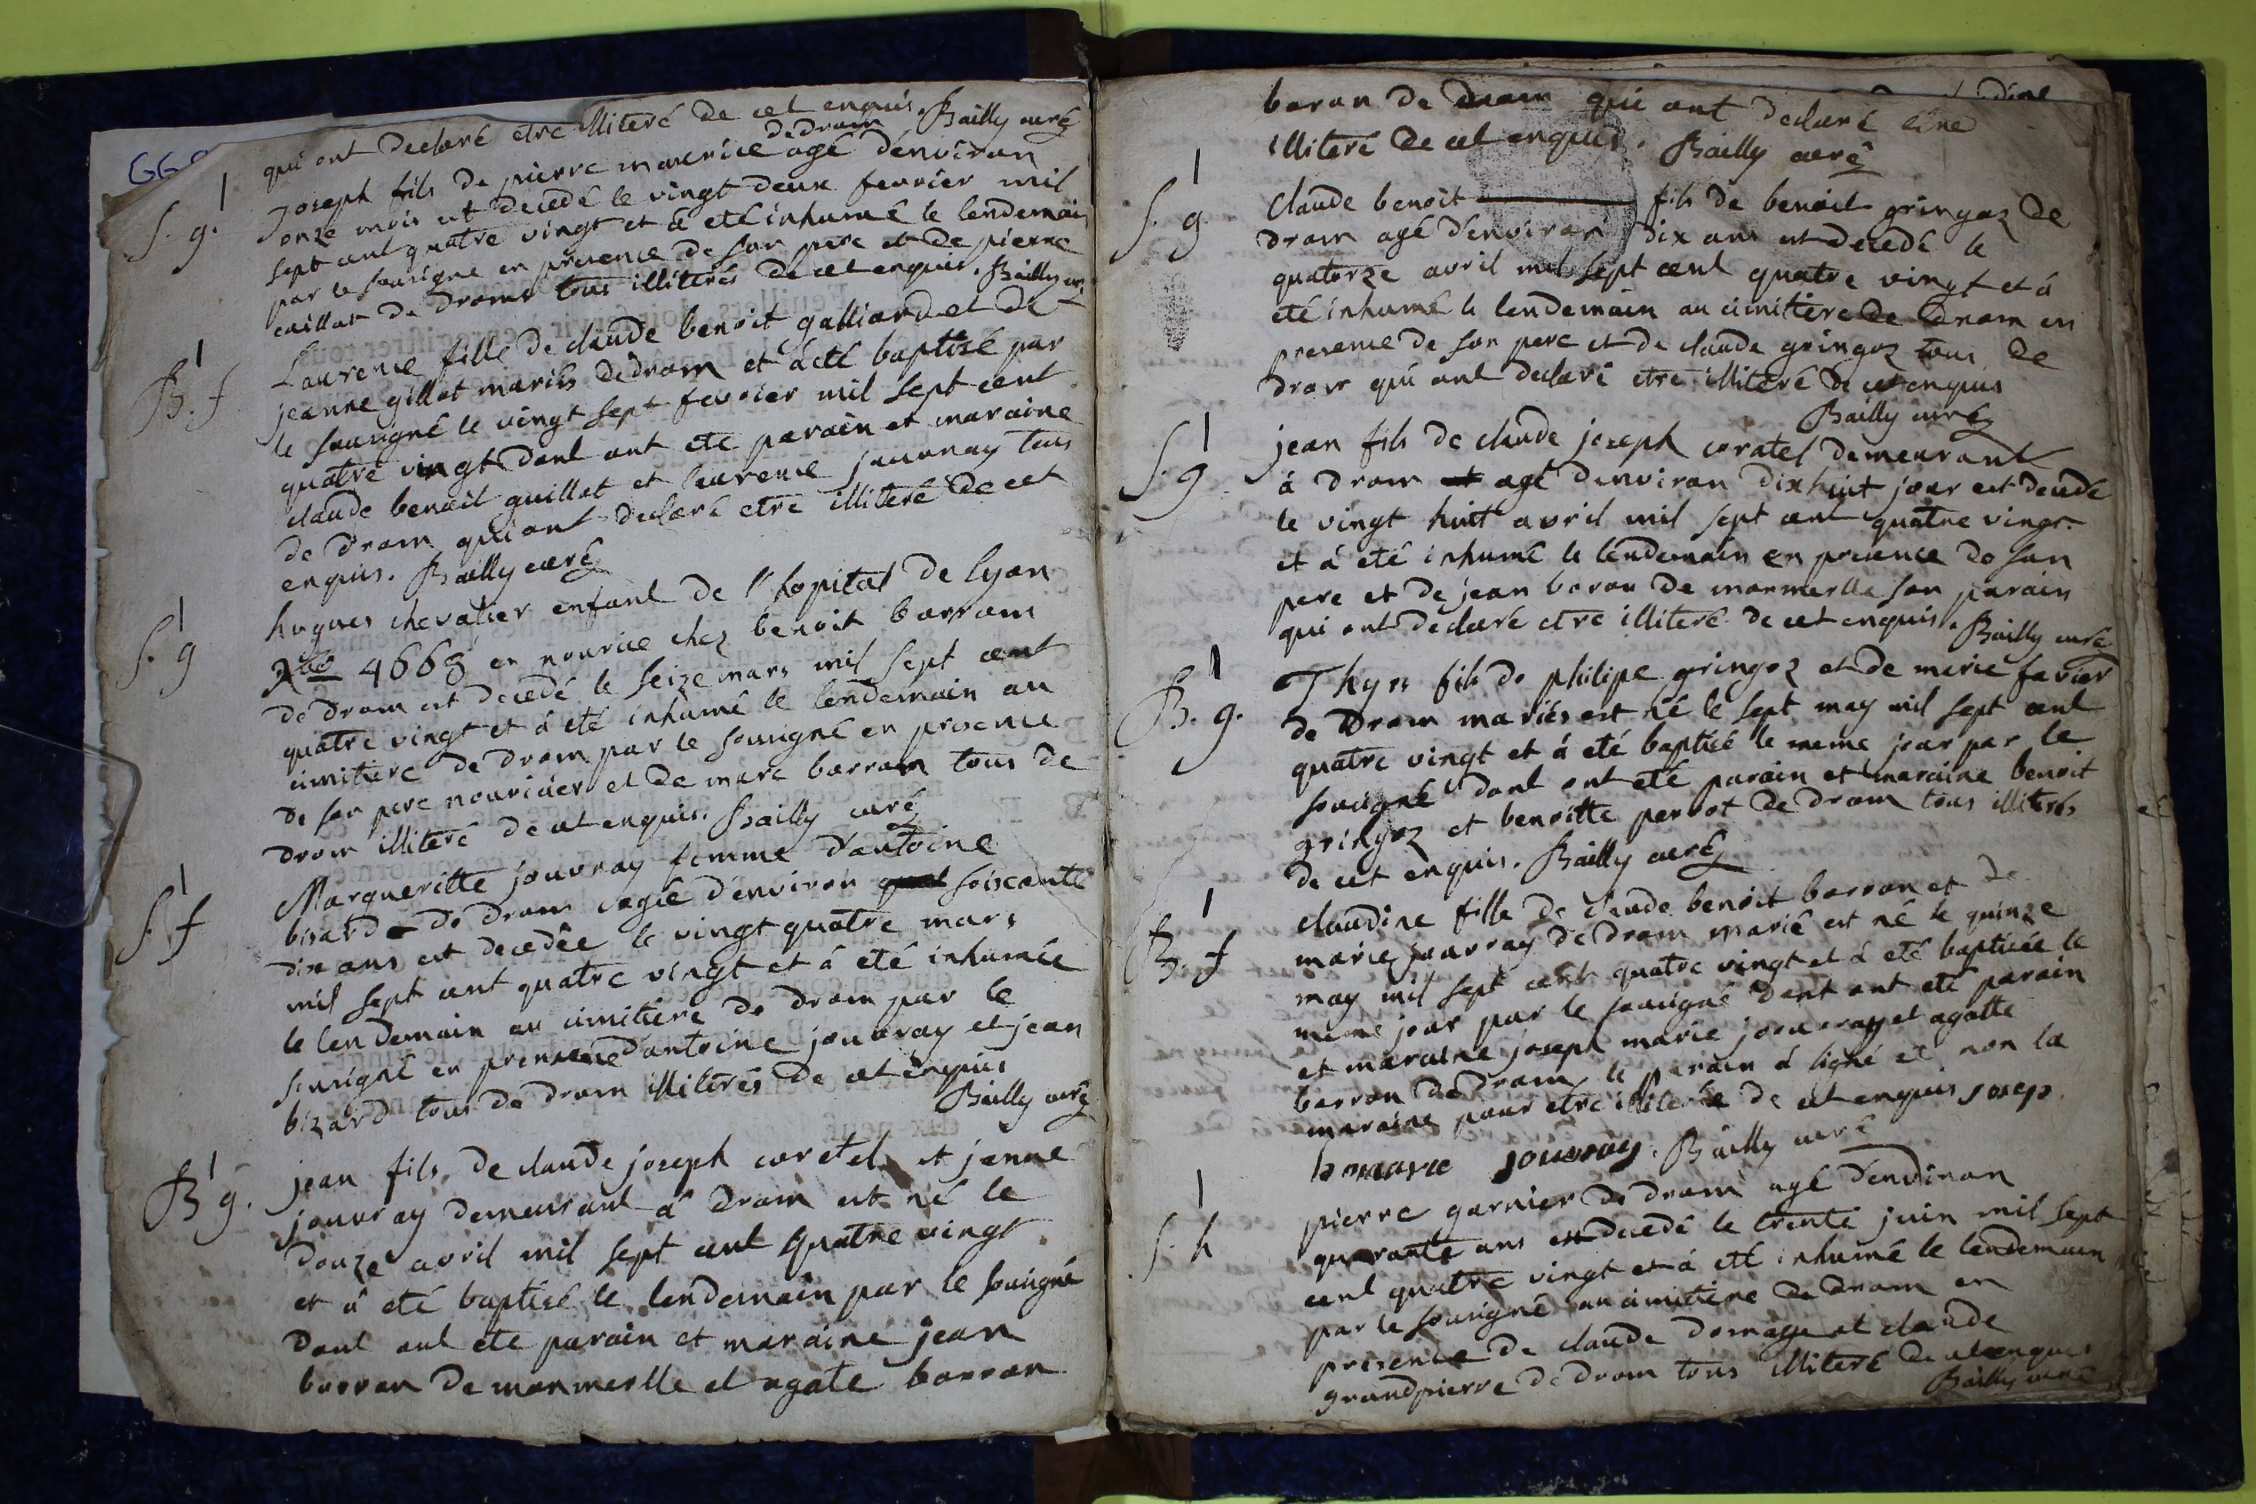 qui ont declaré etre illiteré de cet enquis. Bailly curé
1
S. g.
dedrom
Joseph fils de pierre maurice agé d'environ
onze mois est decedé le vingt deux fevrier mil
sept cent quatre vingt et á eté inhumé le lendemain
par le sousigné en présence de son pere et de pierre
caillat de drom tous illiterés de cet enquis. Bailly curé
1
B. f
Laurence fille de claude benoit galliard et de
jeanne gillot mariés de drom et á eté baptisé par
le sousigné le vingt sept fevrier mil sept cent
quatre vingt dont ont ete parain et maraine
claude benoit guillot et laurence jouvray tous
de drom qui ont declaré etre illiteré de cet
enquis. Bailly curé
1
S. g
hugues chevalier enfant de l'hopital de lyon
4668 en nourice chez benoit barram
de drom est decedé le seize mars mil sept cent
quatre vingt et á eté inhumé le lendemain au
cimitiere de drom par le sousigné en presence
de son pere nouricier et de marc barram tous de
drom illiteré de cet enquis. Bailly curé
1
S. f
Margueritte jouvray femme d'antoine
bizard de drom agée d'environ soiscante
dix ans est decedée le vingt quatre mars
mil sept cent quatre vingt et á eté inhumée
le lendemain au cimitiere de drom par le
sousigné en presence d'antoine jouvray et jean
bizard tous de drom illiterés de cet enquis
Bailly curé
1
B g.
jean fils de claude joseph coretel et janne
jouvray demeurant á drom est né le
douze avril mil sept cent quatre vingt
et á eté baptisé le lendemain par le sousigné
dont ont ete parain et maraine jean
borron de marmerlle et agate borron
baron de drom qui ont declaré etre
illiteré de cet enquis. Bailly curé
1
S. g
Claude benoit fils de benoit gringoz de
drom agé d'environ dix ans est decedé le
quatorze avril mil sept cent quatre vingt et á
eté inhumé le lendemain au cimitiere de drom en
presence de son pere et de claude gringoz tous de
drom qui ont declaré etre illiteré de cet enquis
Bailly curé
1
S. g
jean fils de claude joseph coratel demeurant
á drom agé d'environ dix huit jour est decedé
le vingt huit avril mil sept cent quatre vingt
et á eté inhumé le lendemain en presence de son
pere et de jean baron de marmerlle son parain
qui ont declaré etre illiteré de cet enquis. Bailly curé
1
B. g.
Thyrs fils de philipe gringoz et de marie favier
de drom mariés est né le sept may mil sept cent
quatre vingt et á eté baptisé le meme jour par le
sousigné dont ont eté parain et maraine benoit
gringoz et benoitte perrot de drom tous illiterés
de cet enquis. Bailly curé
1
B. f
claudine fille de claude benoit barron et de
marie jouvray de drom marié est né le quinze
may mil sept cent quatre vingt et á eté baptisée le
meme jour par le sousigné dont ont eté parain
et maraine joseph marie jouvray et agatte
barron de drom le parain á signé et non la
maraine pour etre illiterée de cet enquis Josep
h marie jouvray. Bailly curé
1
S. h
pierre garnier de drom agé d'environ
quarante ans est decedé le trente juin mil sept
cent quatre vingt et á eté inhumé le lendemain
par le sousigné au cimitiere de drom en
presence de claude domage et claude
grandpierre de drom tous illiteré de cet enquis
Bailly curé